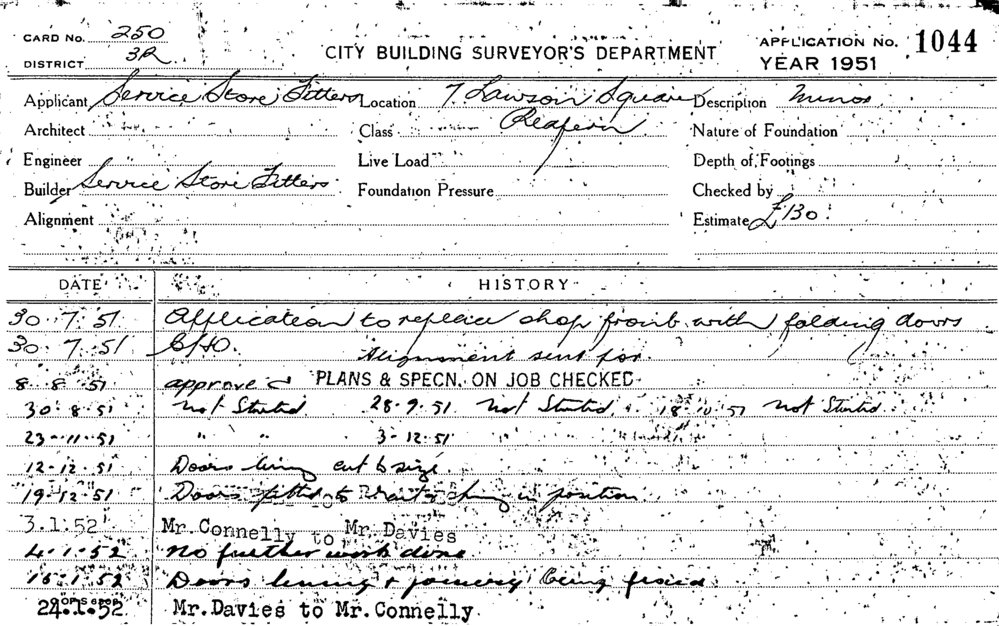 CARD No. 250
DISTRICT 3R
CITY BUILDING SURVEYOR'S DEPARTMENT
APPLICATION No. 1044
YEAR 1951
Applicant Service Store Fitters Location 7. Lawson Square Description Minor
Architect Class Redfern Nature of Foundation
Engineer Live Load Depth of Footings
Builder Service Store Fitters Foundation Pressure Checked by
Alignment Estimate £130
DATE HISTORY
30.7.51 Application to replace shop front with folding doors
30.7.51 Alignment sent for.
8.8.51 approved PLANS & SPECN. ON JOB CHECKED
30.8.51 Not Started 28.9.51 Not Started 18.10.51 Not Started
23.11.51 " " 3.12.51 " "
12.12.51 Doors being cut to size.
19.12.51 Doors fitted in position
3.1.52 Mr. Connelly to Mr. Davies
4.1.52 No further work done
16.1.52 Doors & joinery being fixed
24.1.52 Mr. Davies to Mr. Connelly.